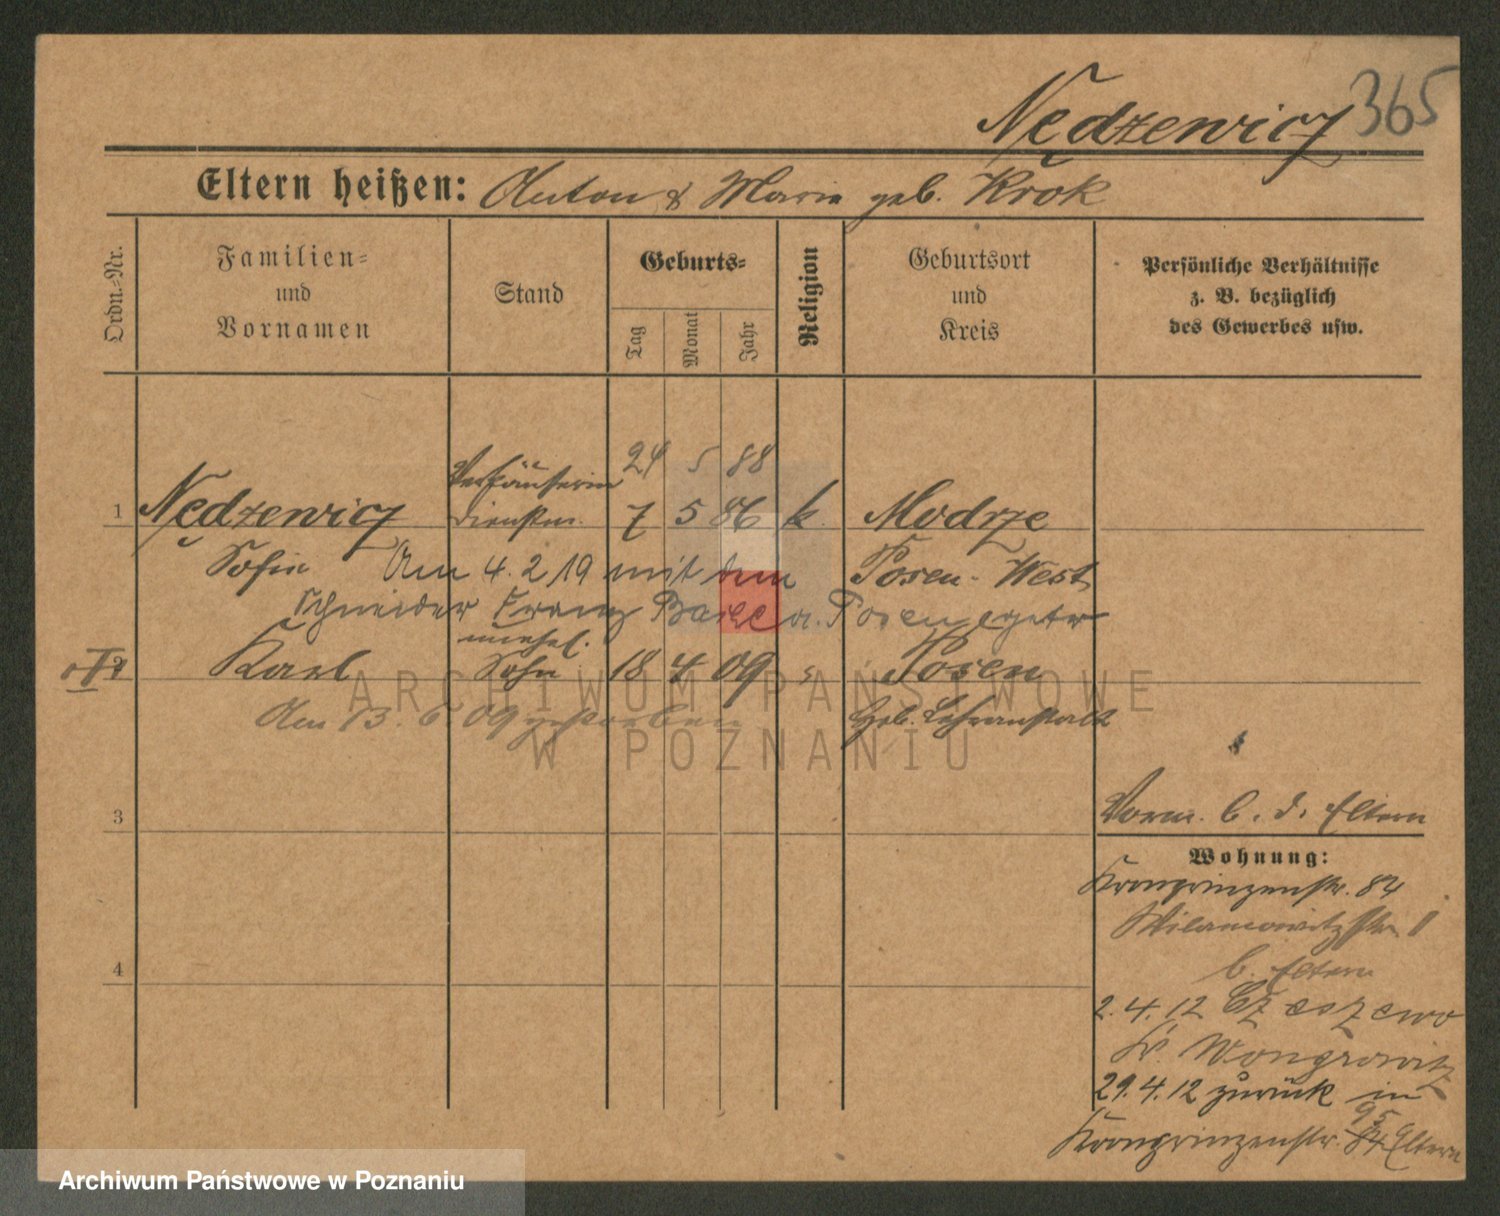 Nędzewicz 365
Eltern heißen: Anton & Marie geb. Krok
Ordn.-Nr.
Familien-
und
Vornamen
Stand
Geburts-
Tag
Monat
Jahr
Religion
Geburtsort
und
Kreis
Persönliche Verhältnisse
z. B. bezüglich
des Gewerbes usw.
Verkäuferin 24 5 88
1 Nędzewicz Dienstm. 7 5 86 k. Modrze
Sofie Am 4. 2 19 mit dem Posen-West
Schneider Franz a. Posen
unehel.
2 Karl Sohn 18 4 09 Posen
Am 13. 6 09 gestorben Heb. Lehranstalt
3
Vorm. b. d. Eltern
Wohnung:
Kronprinzenstr. 84
Wilamowitzstr.
b. Eltern
4
2. 4. 12 Czeszewo
Kr. Wongrowitz
29. 4. 12 zurück in
95
Kronprinzenstr. 84 Eltern
ARCHIWUM PAŃSTWOWE
W POZNANIU
Archiwum Państwowe w Poznaniu